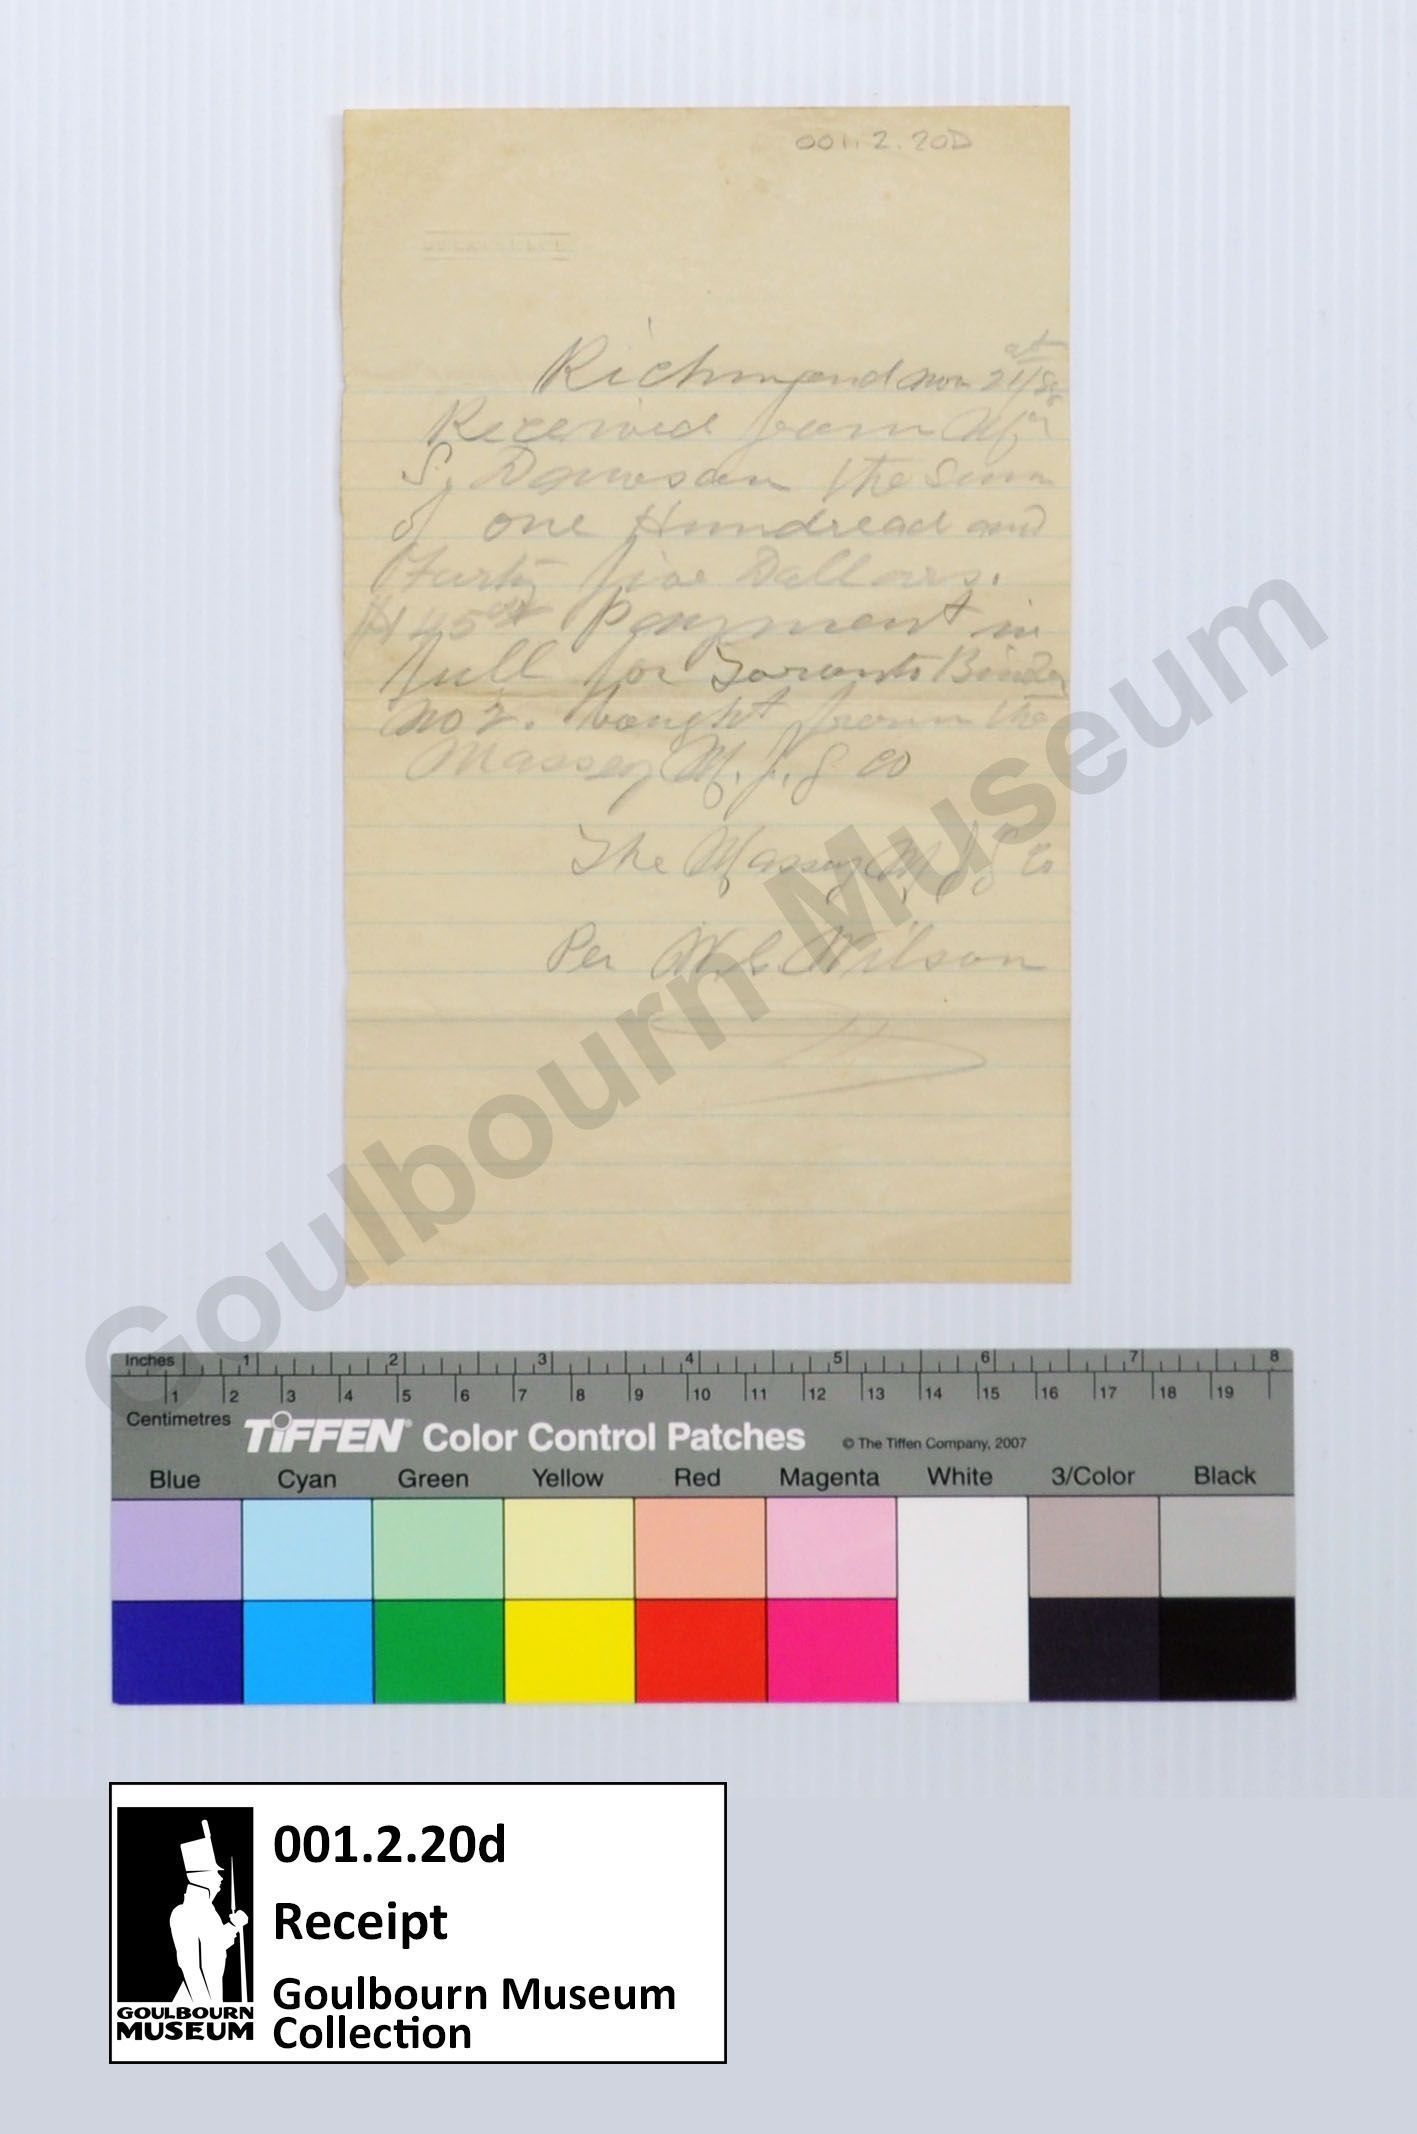 001.2.20D
Richmond Nov 21st/88
Received from Mr
S, Dawson the Sum
of one Hundread and
Forty five Dollars.
$145 payment in
full for Toronto Binder
No 2. bought from the
Massey M. f. g Co
The Massey M. f. g Co
Per W. Wilson
Goulbourn Museum
Inches 1 2 3 4 5 6 7 8
1 2 3 4 5 6 7 8 9 10 11 12 13 14 15 16 17 18 19
Centimetres TIFFEN® Color Control Patches © The Tiffen Company, 2007
Blue Cyan Green Yellow Red Magenta White 3/Color Black
001.2.20d
Receipt
Goulbourn Museum
Collection
GOULBOURN
MUSEUM